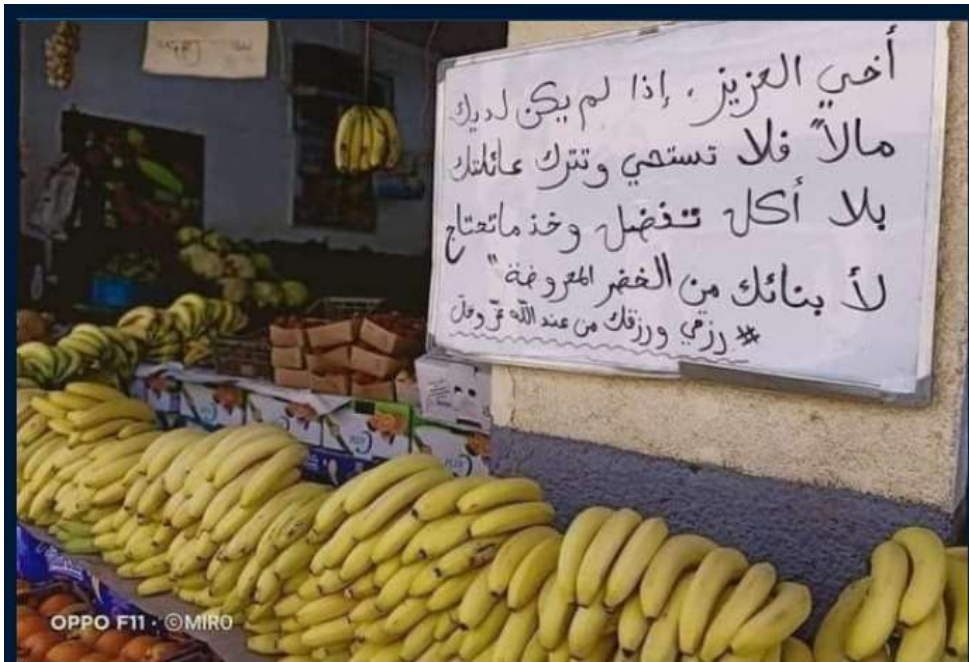 أخي العزيز، إذا لم يكن لديك
مالاً فلا تستحي وتترك عائلتك
بلا أكل تفضل وخذ ماتحتاج
لأبنائك من الخضر المعروضة"
# رزقي ورزقك من عند الله عز وجل
OPPO F11 · ©MIRO